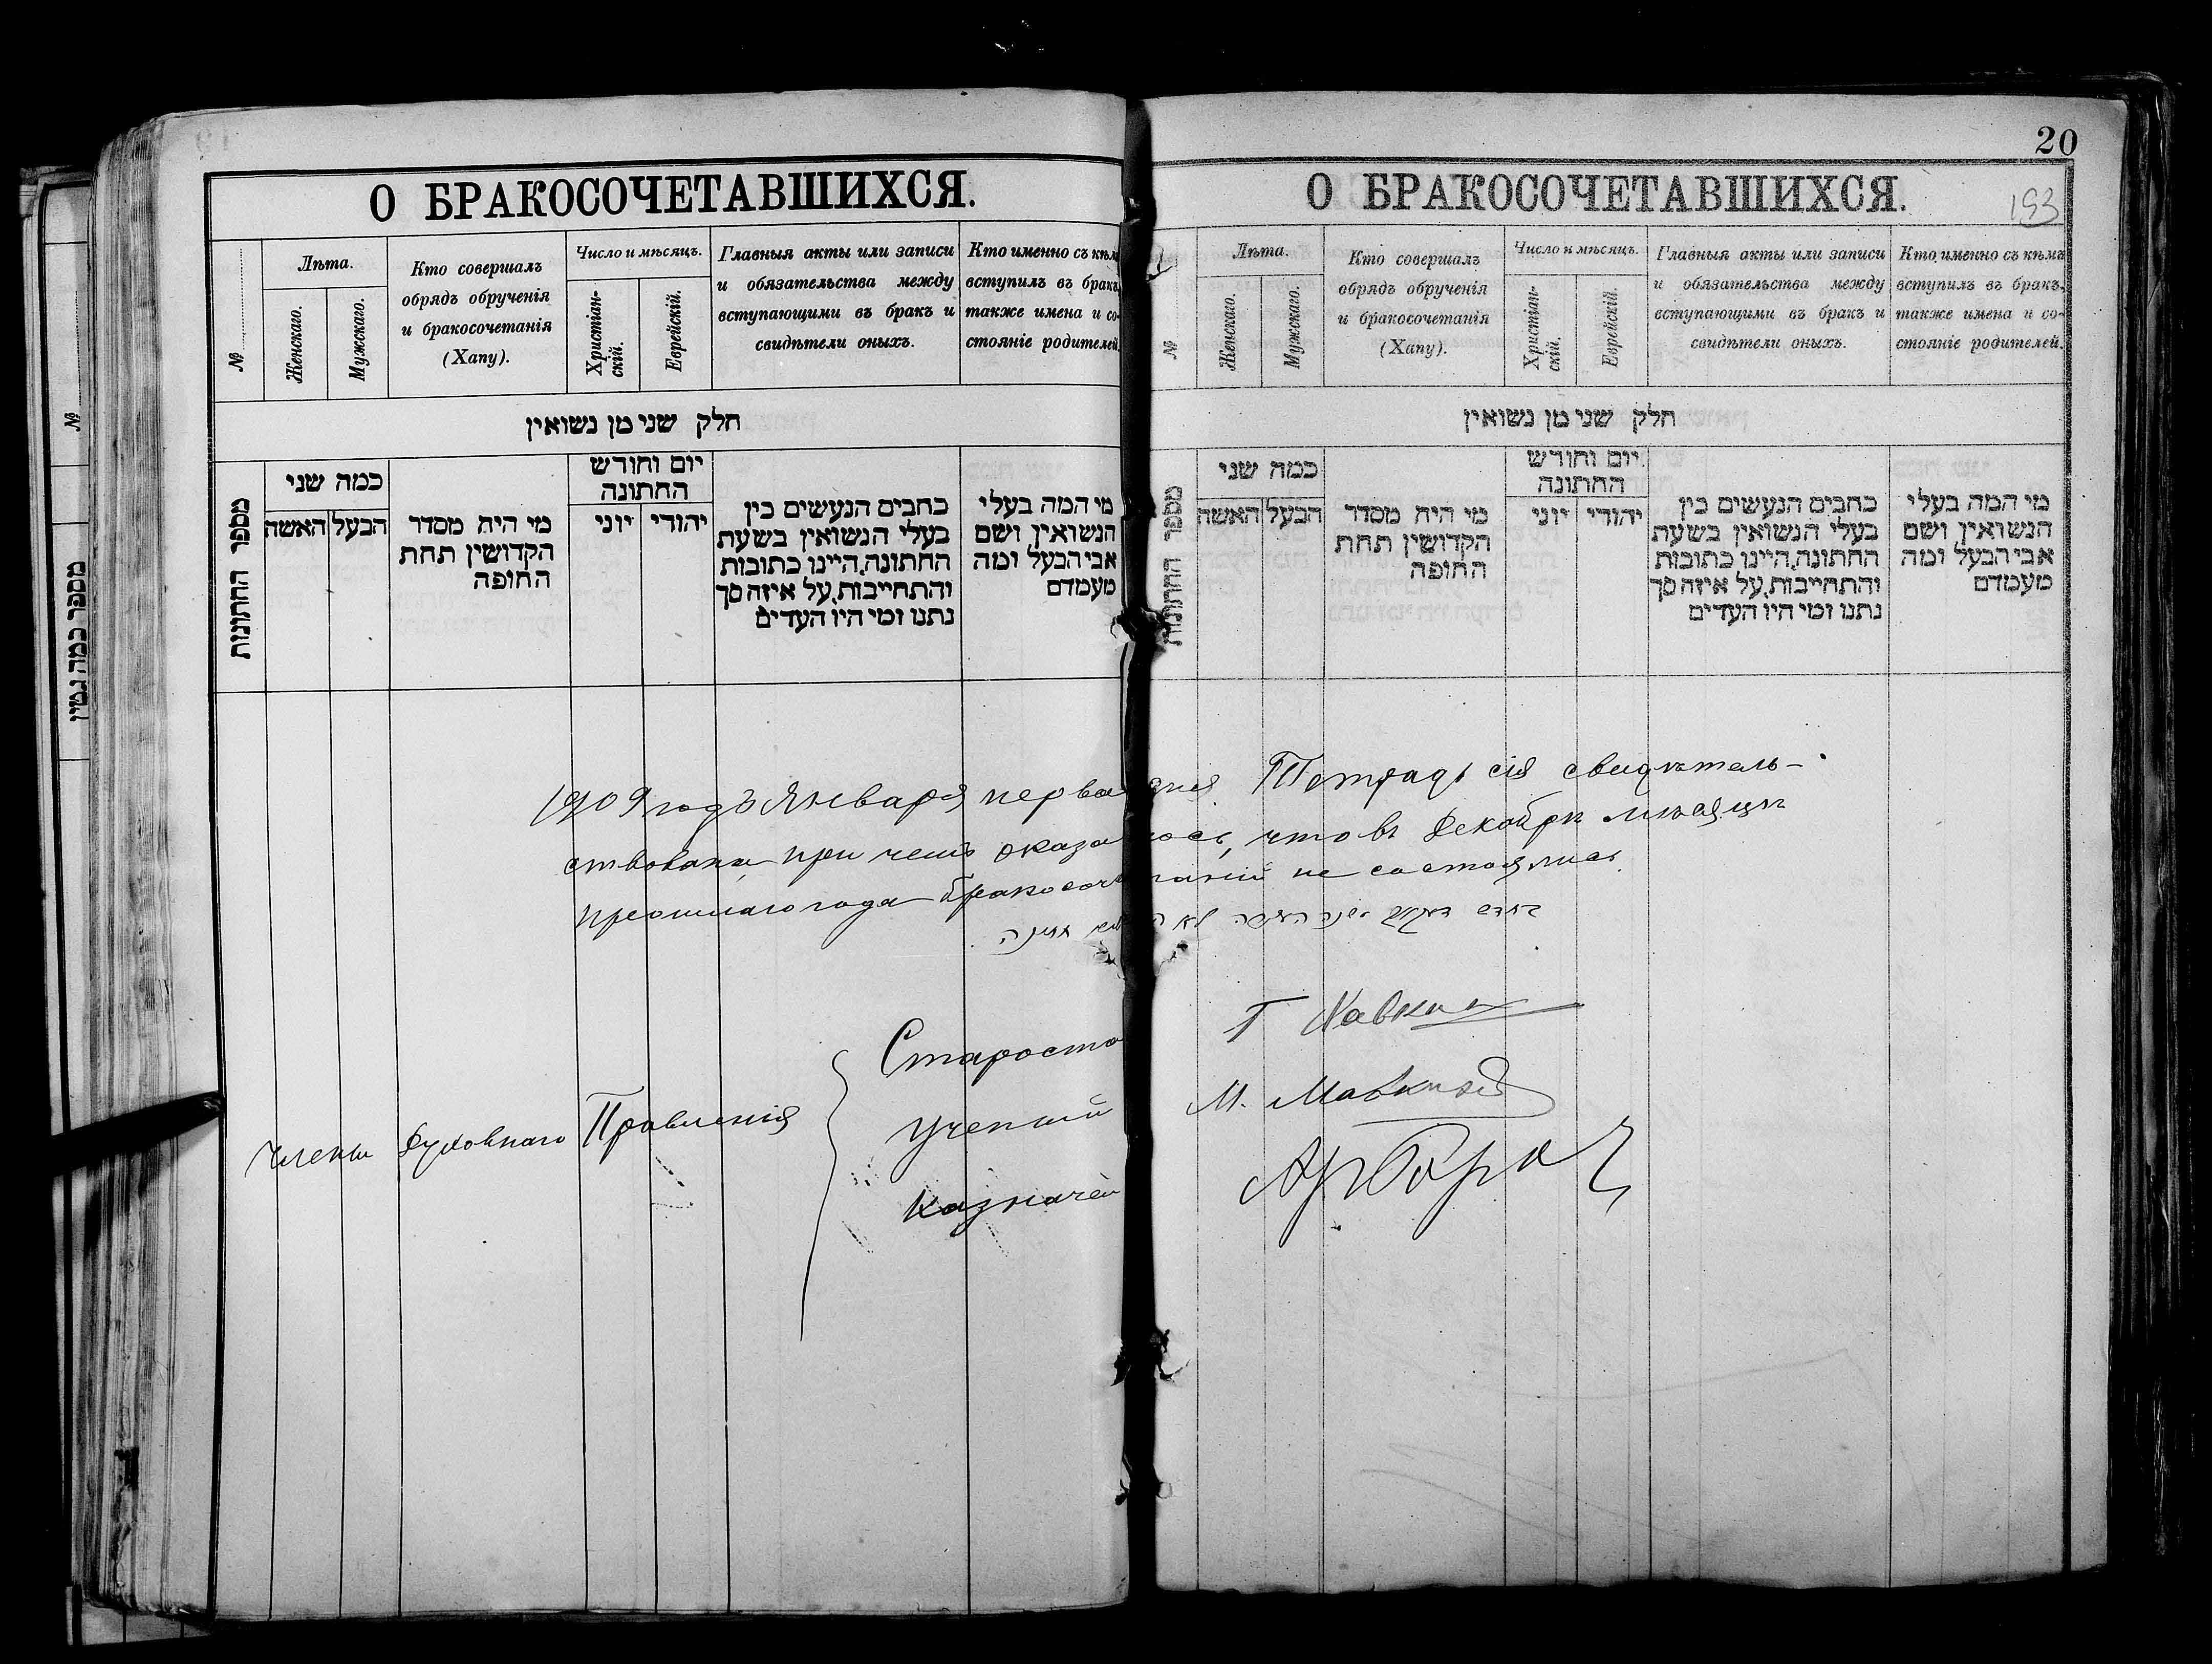 О БРАКОСОЧЕТАВШИХСЯ.
№
Лѣта.
Женскаго.
Мужскаго.
Кто совершалъ
обрядъ обрученія
и бракосочетанія
(Хапу).
Число и мѣсяцъ.
Христіан-
скій.
Еврейскій.
Главныя акты или записи
и обязательства между
вступающими въ бракъ и
свидѣтели оныхъ.
Кто именно съ кѣмъ
вступилъ въ бракъ,
также имена и со-
стояніе родителей.
חלק שני מן נשואין
מספר החתונות
כמה שני
הבעל האשה
מי היה מסדר
הקדושין תחת
החופה
יום וחודש
החתונה
יהודי יוני
כחבים הנעשים בין
בעלי הנשואין בשעת
החתונה, היינו כתובות
והתחייבות, על איזה סך
נתנו ומי היו העדים
מי המה בעלי
הנשואין ושם
אבי הבעל ומה
מעמדם
20
193
О БРАКОСОЧЕТАВШИХСЯ.
№
Лѣта.
Женскаго.
Мужскаго.
Кто совершалъ
обрядъ обрученія
и бракосочетанія
(Хапу).
Число и мѣсяцъ.
Христіан-
скій.
Еврейскій.
Главныя акты или записи
и обязательства между
вступающими въ бракъ и
свидѣтели оныхъ.
Кто именно съ кѣмъ
вступилъ въ бракъ,
также имена и со-
стояніе родителей.
חלק שני מן נשואין
מספר החתונות
כמה שני
הבעל האשה
מי היה מסדר
הקדושין תחת
החופה
יום וחודש
החתונה
יהודי יוני
כחבים הנעשים בין
בעלי הנשואין בשעת
החתונה, היינו כתובות
והתחייבות, על איזה סך
נתנו ומי היו העדים
מי המה בעלי
הנשואין ושם
אבי הבעל ומה
מעמדם
1909 годъ Января перва дня Тетрадь сія свидѣтель-
ствована, при чемъ оказалось, что въ Декабрѣ мѣсяцѣ
прошлаго года бракосочетаній не состоялись.
Члены Духовнаго Правленія
Староста
Ученый
Казначей
№
מספר כמה גטין